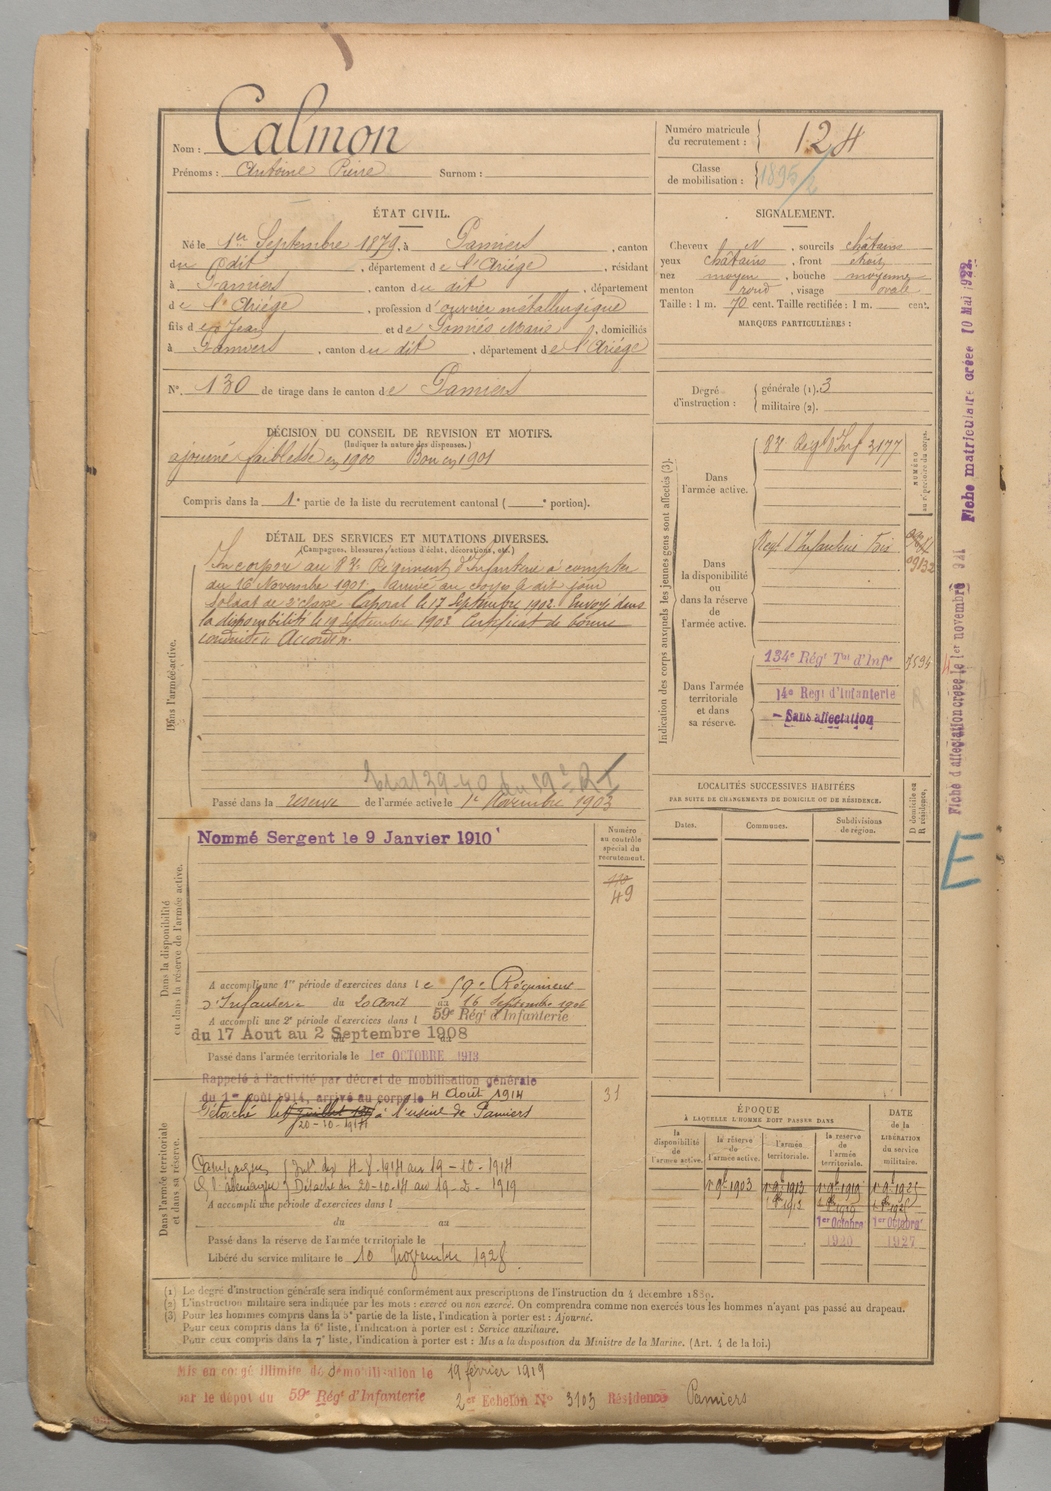 Nom : Calmon
Prénoms : Antoine Pierre Surnom :
Numéro matricule du recrutement : 124
Classe de mobilisation : 1895/2
ÉTAT CIVIL.
Né le 1er Septembre 1879, à Pamiers, canton
du dit, département de l'Ariége, résidant
à Pamiers, canton du dit, département
de l'Ariége, profession d'ouvrier métallurgique
fils de Jean et de Marie, domiciliés
à Pamiers, canton du dit, département de l'Ariége
N° 130 de tirage dans le canton de Pamiers
SIGNALEMENT.
Cheveux N, sourcils châtains
yeux châtains, front étroit
nez moyen, bouche moyenne
menton rond, visage ovale
Taille : 1 m. 70 cent. Taille rectifiée : 1 m. cent.
MARQUES PARTICULIÈRES :
Degré d'instruction : générale (1). 3
militaire (2).
DÉCISION DU CONSEIL DE REVISION ET MOTIFS.
(Indiquer la nature des dispenses.)
ajourné faiblesse en 1900 Bon en 1901
Compris dans la 1e partie de la liste du recrutement cantonal ( e portion).
DÉTAIL DES SERVICES ET MUTATIONS DIVERSES.
(Campagnes, blessures, actions d'éclat, décorations, etc.)
Dans l'armée active.
Incorporé au 87e Régiment d'Infanterie à compter
du 16 Novembre 1901. arrivé au corps le dit jour
soldat de 2e classe Caporal le 17 Septembre 1902. Envoyé dans
la disponibilité le 19 septembre 1903 Certificat de bonne
conduite "Accordé".
Passé dans la réserve de l'armée active le 1er Novembre 1903
Indication des corps auxquels les jeunes gens sont affectés (3).
NUMÉRO au répertoire du corps.
Dans l'armée active.
87 Regt d'Inf 3177
Dans la disponibilité ou dans la réserve de l'armée active.
Regt d'Infanterie Foix
Dans l'armée territoriale et dans sa réserve.
134e Régt Tal d'Infie
14e Regt d'Infanterie
- Sans affectation
LOCALITÉS SUCCESSIVES HABITÉES
PAR SUITE DE CHANGEMENTS DE DOMICILE OU DE RÉSIDENCE.
D domicile ou R résidence.
Dates. Communes. Subdivisions de région.
Dans la disponibilité ou dans la réserve de l'armée active.
Numéro au contrôle spécial du recrutement.
Nommé Sergent le 9 Janvier 1910
49
A accompli une 1re période d'exercices dans le 59e Régiment
d'Infanterie du 20 Août au 16 Septembre 1906
A accompli une 2e période d'exercices dans l 59e Régt d'Infanterie
du 17 Aout au 2 Septembre 1908
Passé dans l'armée territoriale le 1er OCTOBRE 1913
Dans l'armée territoriale et dans sa réserve.
Rappelé à l'activité par décret de mobilisation générale
du 1er août 1914, arrivé au corps le 4 Août 1914
31
Détaché le à l'usine de Pamiers
20-10-1914
Campagnes Int. du 4-8-1914 au 19-10-1914
C. l'allemagne Détaché du 20-10-14 au 19-2-1919
A accompli une période d'exercices dans l
du au
Passé dans la réserve de l'armée territoriale le
Libéré du service militaire le 10 Novembre 1928.
ÉPOQUE
À LAQUELLE L'HOMME DOIT PASSER DANS
DATE de la LIBÉRATION du service militaire.
la disponibilité de l'armée active.
la réserve de l'armée active.
l'armée territoriale.
la réserve de l'armée territoriale.
1er 9bre 1903 1er 9bre 1913 1er 9bre 1919 1er 9bre 1925
1er Octobre 1er Octobre
1920 1927
(1) Le degré d'instruction générale sera indiqué conformément aux prescriptions de l'instruction du 4 décembre 1889.
(2) L'instruction militaire sera indiquée par les mots : exercé ou non exercé. On comprendra comme non exercés tous les hommes n'ayant pas passé au drapeau.
(3) Pour les hommes compris dans la 5e partie de la liste, l'indication à porter est : Ajourné.
Pour ceux compris dans la 6e liste, l'indication à porter est : Service auxiliaire.
Pour ceux compris dans la 7e liste, l'indication à porter est : Mis à la disposition du Ministre de la Marine. (Art. 4 de la loi.)
Mis en congé illimité de démobilisation le 19 février 1919
par le dépôt du 59e Régt d'Infanterie 2er Echelon N° 3103 Résidence Pamiers
Fiche matriculaire créée 10 Mai 1922.
Fiche d'affectation créée le 1er novembre
E